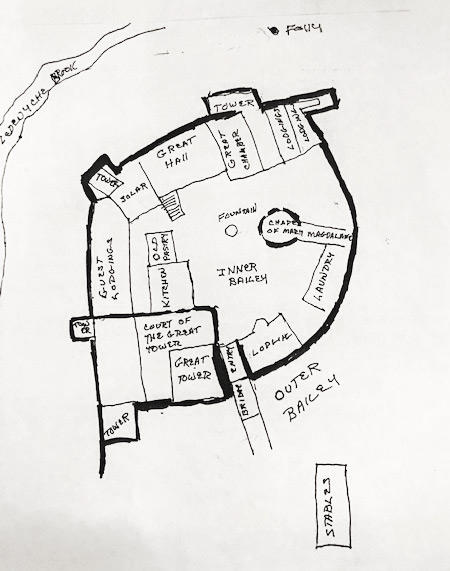 Folly
BROOK
TOWER
GREAT
HALL
GREAT
CHAMBER
LODGINGS
LODGING
TOWER
SOLAR
FOUNTAIN
CHAPEL
OF MARY MAGDALANE
GUEST
LODGINGS
OLD
PASTRY
KITCHEN
INNER
BAILEY
LAUNDRY
COURT OF
THE GREAT
TOWER
GREAT
TOWER
ENTRY
BRIDGE
OUTER
BAILEY
TOWER
STABLES